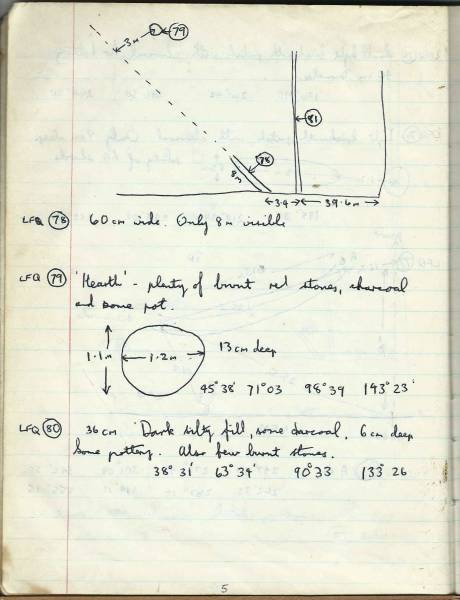 3m 79
81
78
8m
3.9 39.6m
LFQ 78 60cm wide. Only 8m visible
LFQ 79 'Hearth' - plenty of burnt red stones, charcoal
and some pot.
1.1m 1.2m 13cm deep
45°38' 71°03 98°39 143°23'
LFQ 80 36cm Dark silty fill, some charcoal. 6cm deep
Some pottery. Also few burnt stones.
38°31' 63°34' 90°33 133°26
5